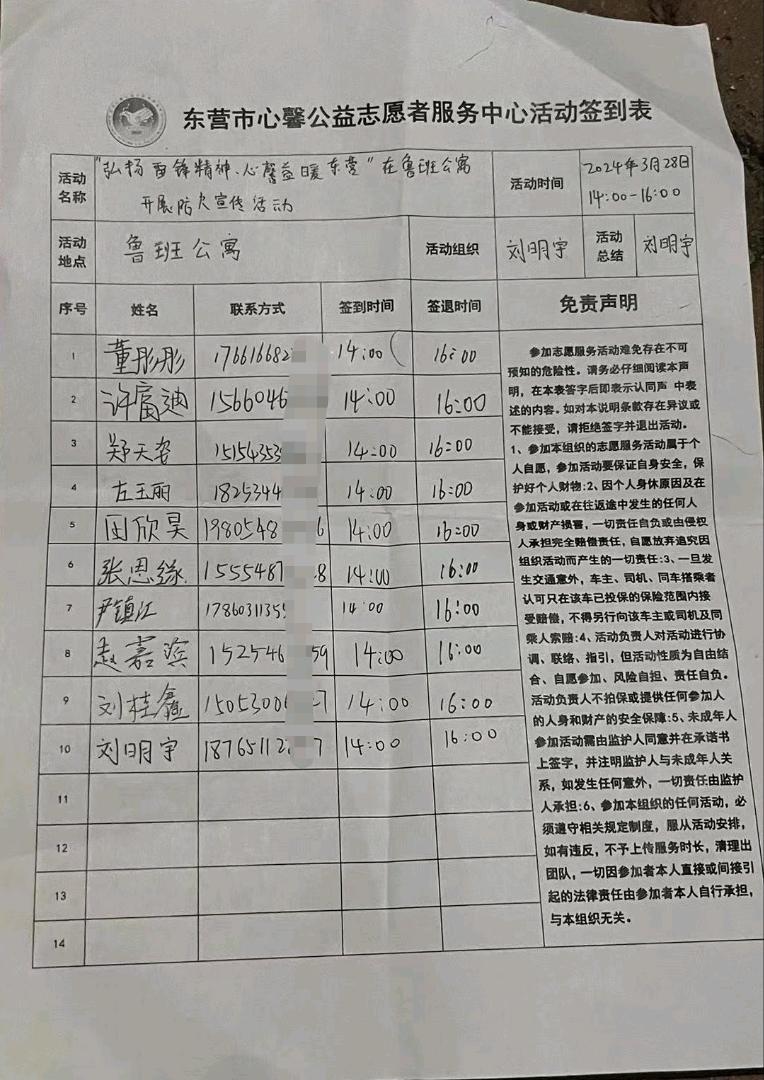 东营市心馨公益志愿者服务中心活动签到表
活动名称 "弘扬雷锋精神、心馨益暖东营"在鲁班公寓开展防欠宣传活动 活动时间 2024年3月28日 14:00-16:00
活动地点 鲁班公寓 活动组织 刘明宇 活动总结 刘明宇
序号 姓名 联系方式 签到时间 签退时间 免责声明
1 董彤彤 176616682 14:00 16:00
2 许富迪 1566046 14:00 16:00
3 郑天姿 15154353 14:00 16:00
4 左玉丽 1825344 14:00 16:00
5 田欣昊 1980548 6 14:00 16:00
6 张恩缘 1555487 8 14:00 16:00
7 尹镇江 1786031135 14:00 16:00
8 赵嘉滨 152546 59 14:00 16:00
9 刘桂鑫 1505300 7 14:00 16:00
10 刘明宇 18765112 7 14:00 16:00
11
12
13
14
参加志愿服务活动难免存在不可
预知的危险性。请务必仔细阅读本声
明，在本表签字后即表示认同声 中表
述的内容。如对本说明条款存在异议或
不能接受，请拒绝签字并退出活动。
1、参加本组织的志愿服务活动属于个
人自愿，参加活动要保证自身安全，保
护好个人财物:2、因个人身休原因及在
参加活动或在往返途中发生的任何人
身或财产损害，一切责任自负或由侵权
人承担完全赔偿责任，自愿放弃追究因
组织活动而产生的一切责任:3、一旦发
生交通意外，车主、司机、同车搭乘者
认可只在该车已投保的保险范围内接
受赔偿，不得另行向该车主或司机及同
乘人索赔:4、活动负责人对活动进行协
调、联络、指引，但活动性质为自由结
合、自愿参加、风险自担、责任自负。
活动负责人不拍保或提供任何参加人
的人身和财产的安全保障:5、未成年人
参加活动需由监护人同意并在承诺书
上签字，并注明监护人与未成年人关
系，如发生任何意外，一切责任由监护
人承担:6、参加本组织的任何活动，必
须遵守相关规定制度，服从活动安排，
如有违反，不予上传服务时长，清理出
团队，一切因参加者本人直接或间接引
起的法律责任由参加者本人自行承担，
与本组织无关。